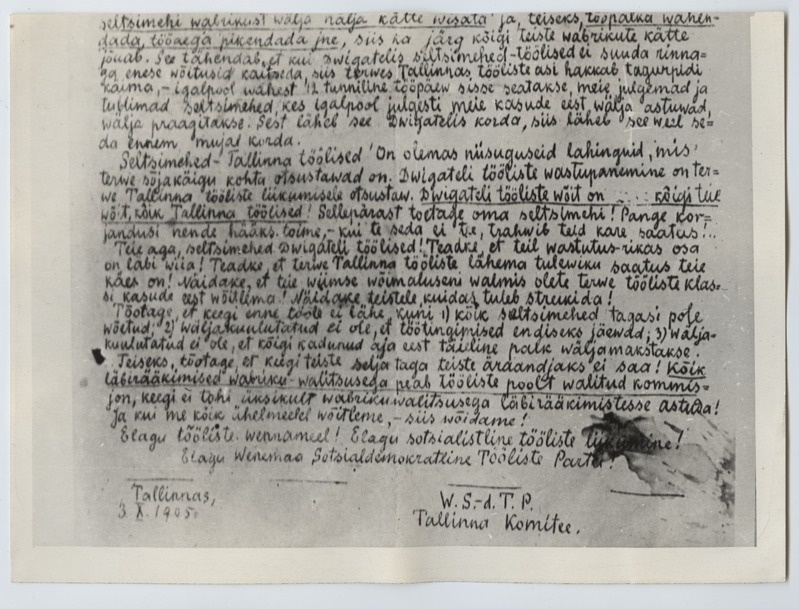 seltsimehi wabrikust wälja nälja kätte wisata ja, teiseks, tööpalka wähen-
dada, tööaega pikendada jne, siis ka järg kõigi teiste wabrikute kätte
jõuab. See tähendab, et kui Dwigatelis seltsimehed-töölised ei suuda rinna-
ga enese wõitusid kaitseda, siis terwes Tallinnas tööliste asi hakkab tagurpidi
käima, - igalpool wähest 12 tunniline tööpäew sisse seatakse, meie julgemad ja
tublimad seltsimehed, kes igalpool julgesti meie kasude eest wälja astuwad,
wälja praagitakse. Sest läheb see Dwigatelis korda, siis lähеb see weel se=
da ennem mujal korda.
Seltsimehed - Tallinna töölised! On olemas niisuguseid lahinguid, mis
terwe sõjakäigu kohta otsustawad on. Dwigateli tööliste wastupanemine on ter=
we Tallinna tööliste liikumisele otsustaw. Dwigateli tööliste wõit on kõigi teie
wõit, kõik Tallinna töölised! Sellepärast toetage oma seltsimehi! Pange kor=
jandusi nende hääks toime, - kui te seda ei tee, trahwib teid kare saatus!..
Teie aga, seltsimehed Dwigateli töölised! Teadke, et teil wastutus-rikas osa
on läbi wiia! Teadke, et terwe Tallinna tööliste lähema tulewiku saatus teie
käes on! Näidake, et teie wiimse wõimaluseni walmis olete terwe tööliste klas-
si kasude eest wõitlema! Näidake teistele, kuidas tuleb streikida!
Tõotage, et keegi enne tööle ei lähe, kuni 1) kõik seltsimehed tagasi pole
wõetud; 2) wäljakuulutatud ei ole, et töötingimised endiseks jäewad; 3) Wälja-
kuulutatud ei ole, et kõigi kadunud aja eest täieline palk wäljamakstakse.
Teiseks, tõotage, et keegi teiste selja taga teiste äraandjaks ei saa! Kõik
läbirääkimised wabriku-walitsusega peab tööliste poolt walitud kommis=
jon, keegi ei tohi üksikult wabrikuwalitsusega läbirääkimistesse astuda!
Ja kui me kõik ühelmeelel wõitleme, - siis wõidame!
Elagu tööliste wennameel! Elagu sotsialistline tööliste liikumine!
Elagu Wenemaa Sotsialdemokratline Tööliste Partei!
Tallinnas,
3. X. 1905.
W. S.-d. T. P.
Tallinna Komitee.